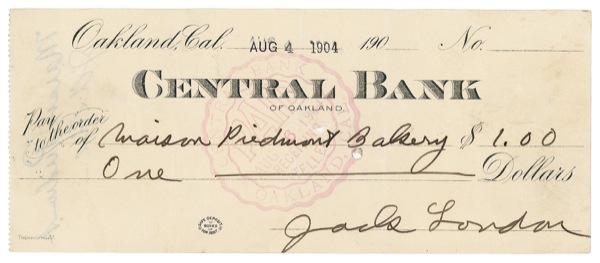 Oakland, Cal. AUG 4 1904 190 No.
CENTRAL BANK
OF OAKLAND.
Pay to the order of Maison Piedmont Bakery $ 1.00
One Dollars
Jack London
SAFE DEPOSIT BOXES FOR RENT